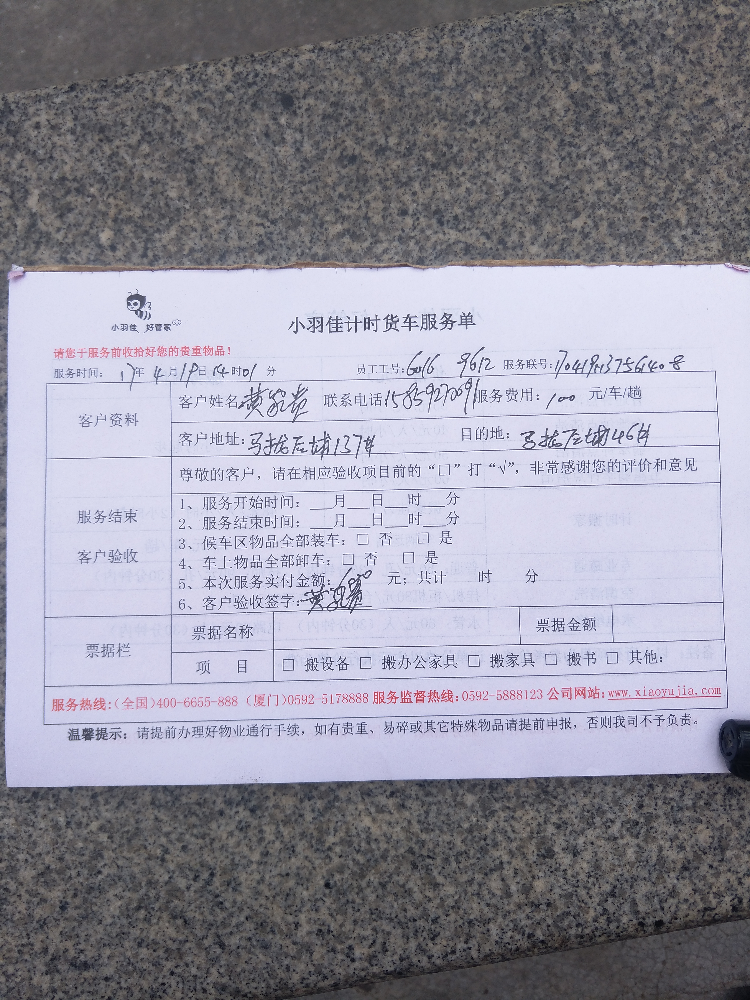 小羽佳 好管家
小羽佳计时货车服务单
请您于服务前收拾好您的贵重物品!
服务时间: 17年 4月19日 14时01分 员工工号:6016 9612 服务联号:
客户资料
客户姓名: 黄 联系电话 服务费用:100 元/车/趟
客户地址:马垅后埔137# 目的地:马垅后埔46#
服务结束
客户验收
尊敬的客户,请在相应验收项目前的“口”打“√”,非常感谢您的评价和意见
1、服务开始时间:___月___日___时___分
2、服务结束时间:___月___日___时___分
3、候车区物品全部装车:□ 否 □ 是
4、车上物品全部卸车:□ 否 □ 是
5、本次服务实付金额:100 元;共计 时 分
6、客户验收签字:黄
票据栏
票据名称 票据金额
项 目 □ 搬设备 □ 搬办公家具 □ 搬家具 □ 搬书 □ 其他:
服务热线:(全国)400-6655-888 (厦门)0592-5178888 服务监督热线:0592-5888123 公司网站:www.xiaoyujia.com
温馨提示:请提前办理好物业通行手续,如有贵重、易碎或其它特殊物品请提前申报,否则我司不予负责。